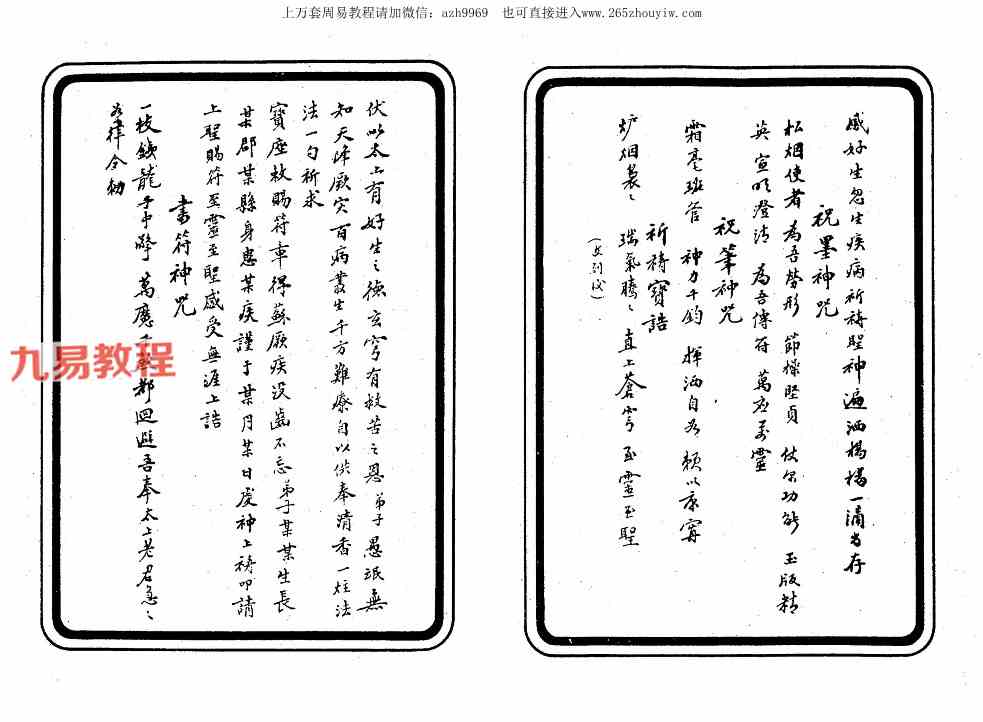 上万套周易教程请加微信：azh9969　也可直接进入www.265zhouyiw.com
感好生忽生疾病祈祷聖神遍洒楊橋一滴当存
祝墨神咒
松烟使者 為吾勞形 節操堅貞 仗尔功能 玉版精
英 宣明澄清 為吾傳符 萬应萬靈
祝筆神咒
霜毫班管 神力千鈞 揮洒自如 頼以康寧
祈禱寶誥
炉烟裊〻 瑞氣騰〻 直上蒼穹 至靈至聖
伏以太上有好生之德玄穹有救苦之恩弟子愚氓無
知天降厥灾百病叢生千方難療自以供奉清香一炷法
法一勺祈求
寶座枚賜符章得蘇厥疾没齒不忘弟子某某生長
某郡某縣身患某疾謹于某月某日虔神上祷叩請
上聖賜符至靈至聖感受無涯上誥
書符神咒
一枝鉄龍手中擎 萬魔 都迴避吾奉太上老君急〻
如律令勅
九易教程